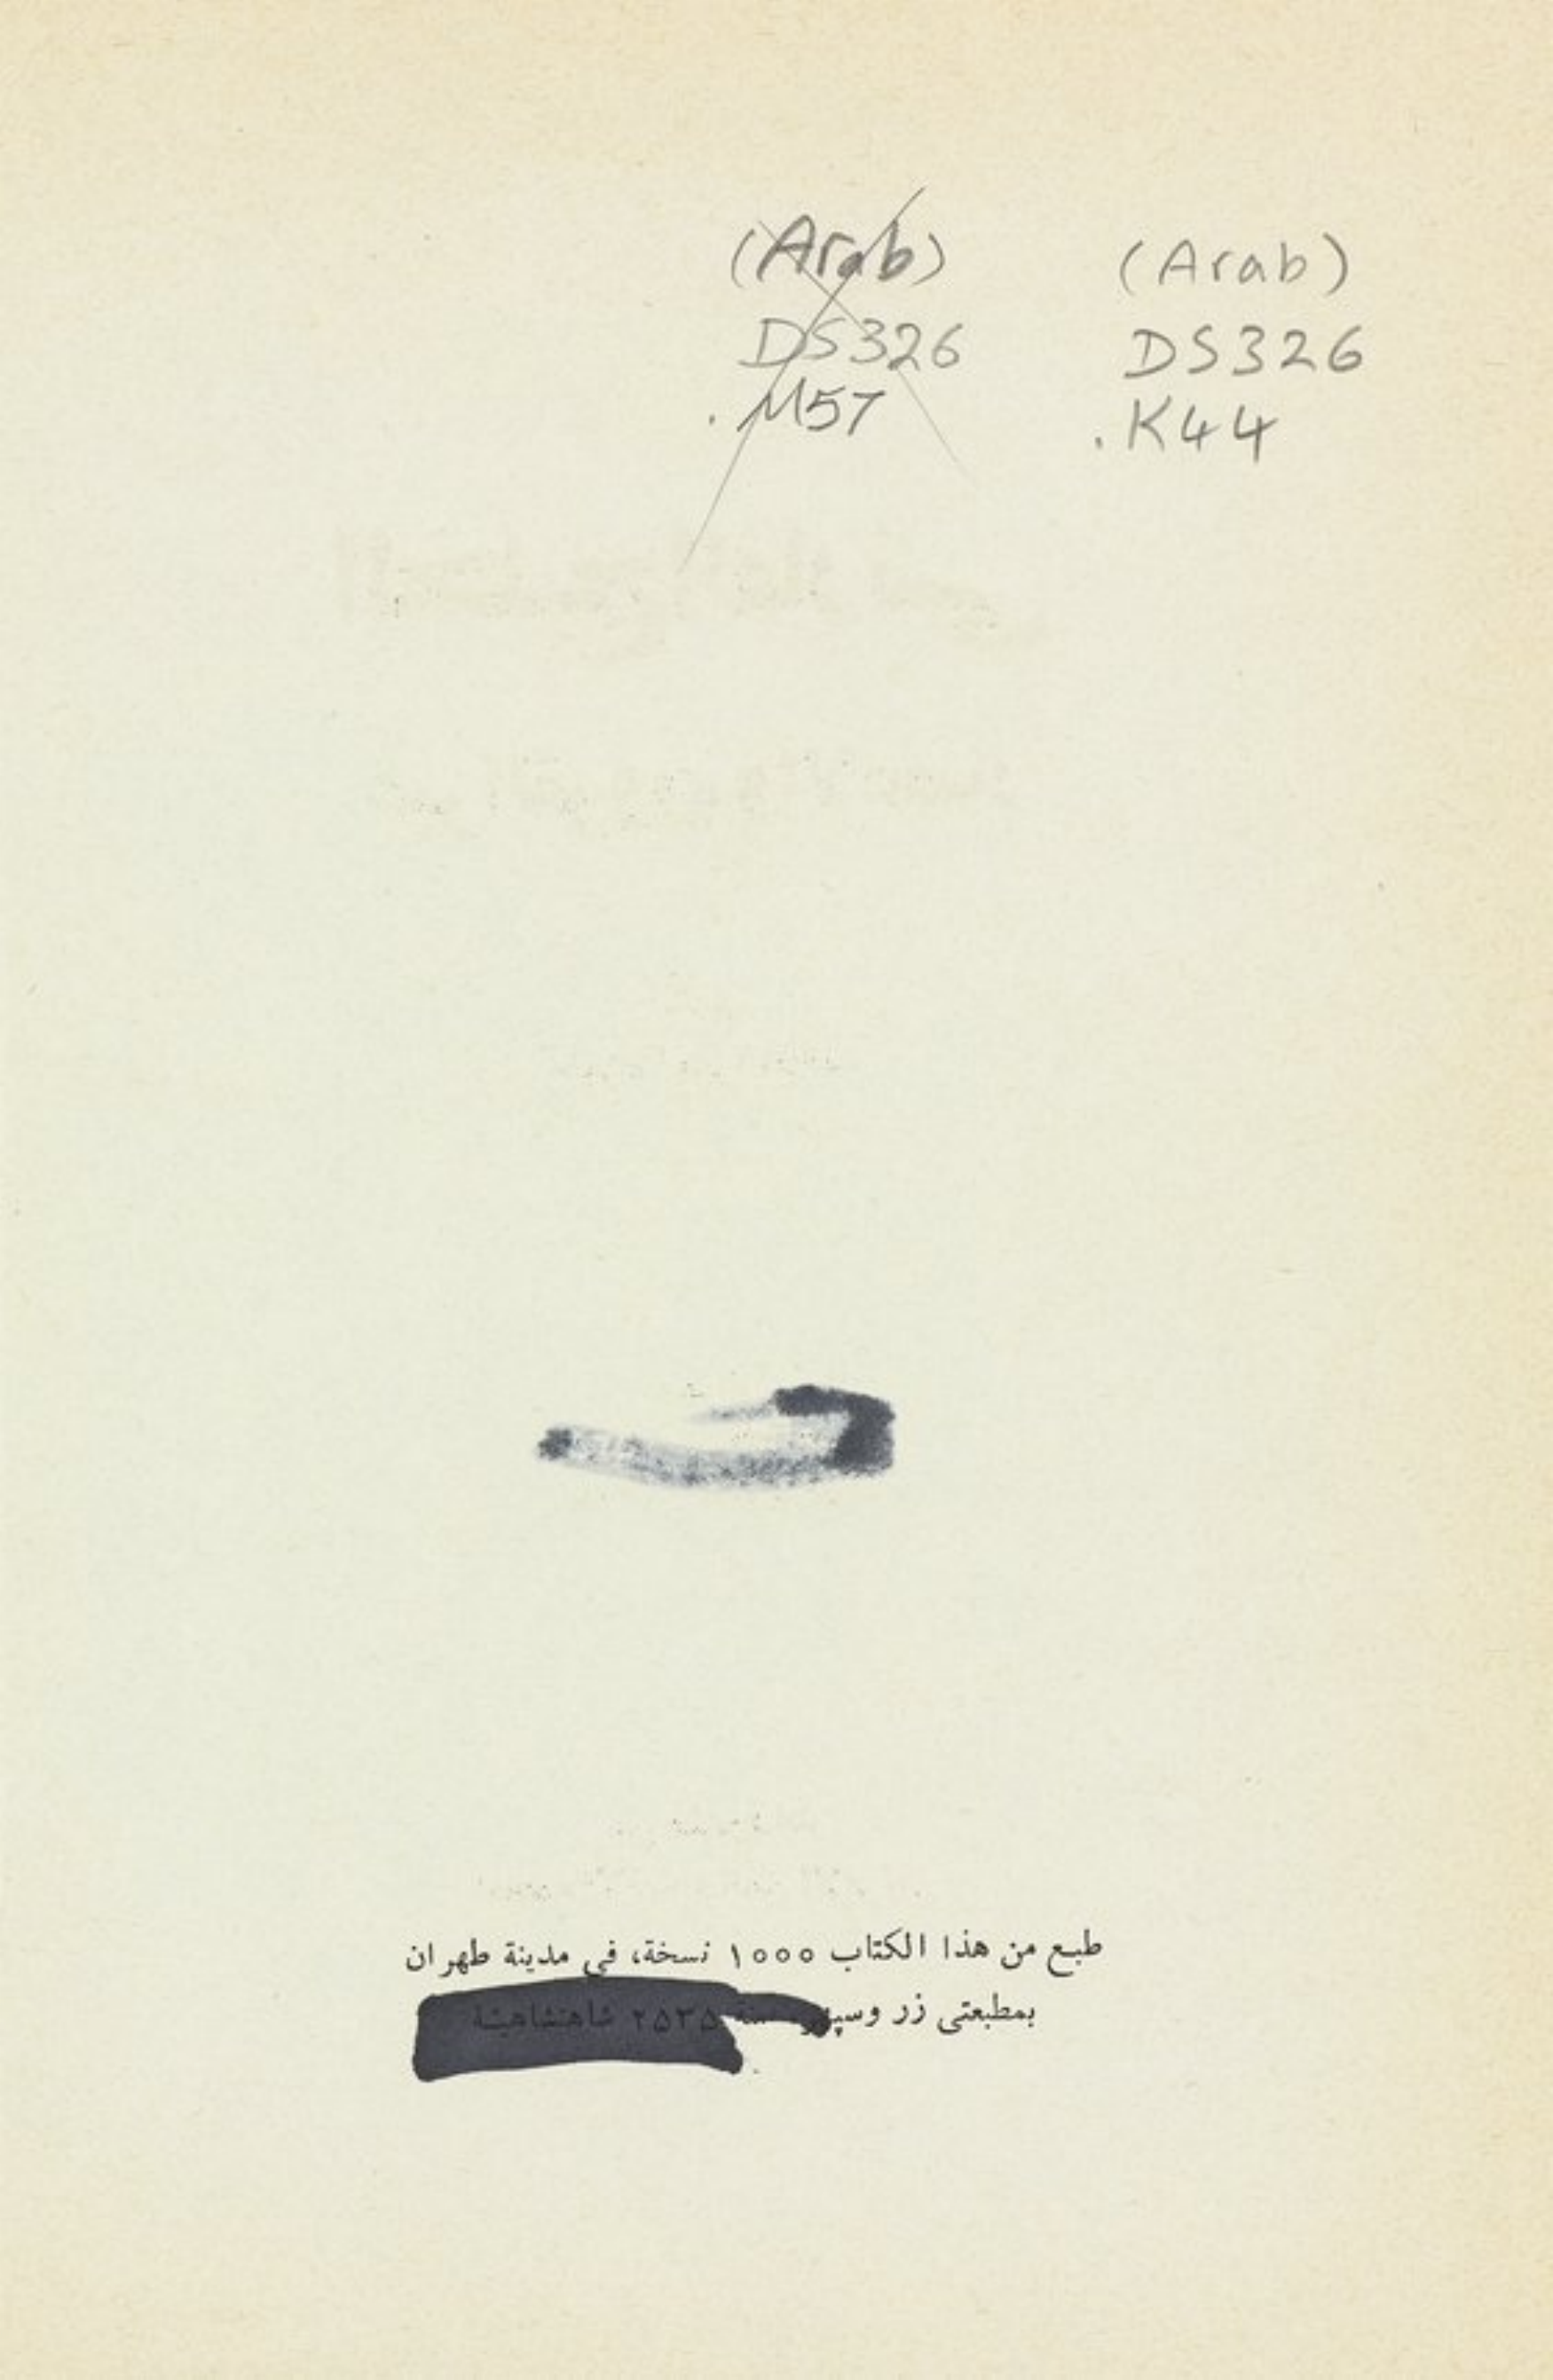 (Arab)
DS326
.M57
(Arab)
DS326
.K44
طبع من هذا الكتاب ١٠٠٠ نسخة، فى مدينة طهران
بمطبعتى زر وسپهر سنة ٢٥٣٥ شاهنشاهية